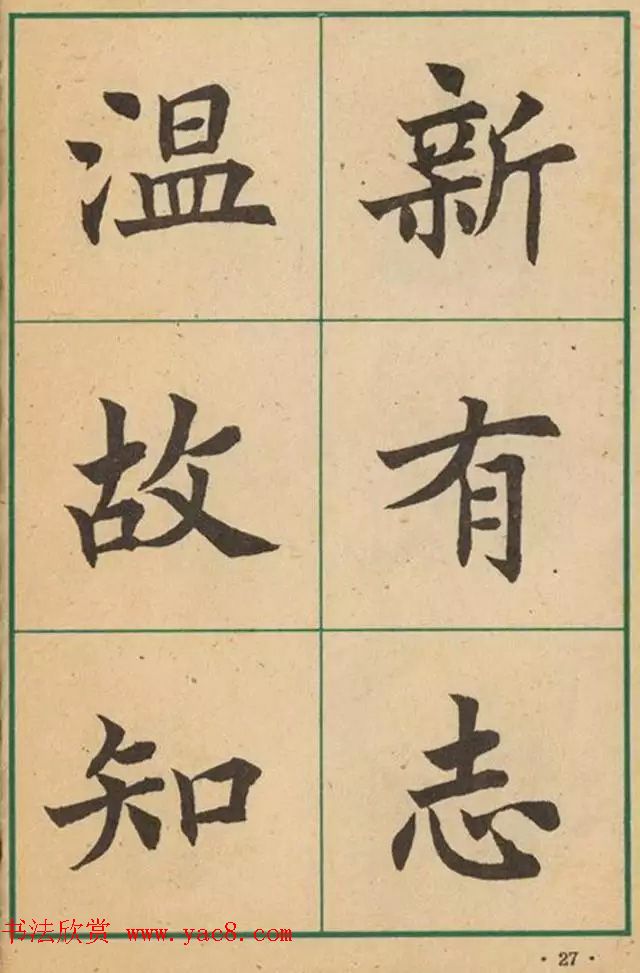 温故知
新有志
书法欣赏 www.yac8.com
·27·